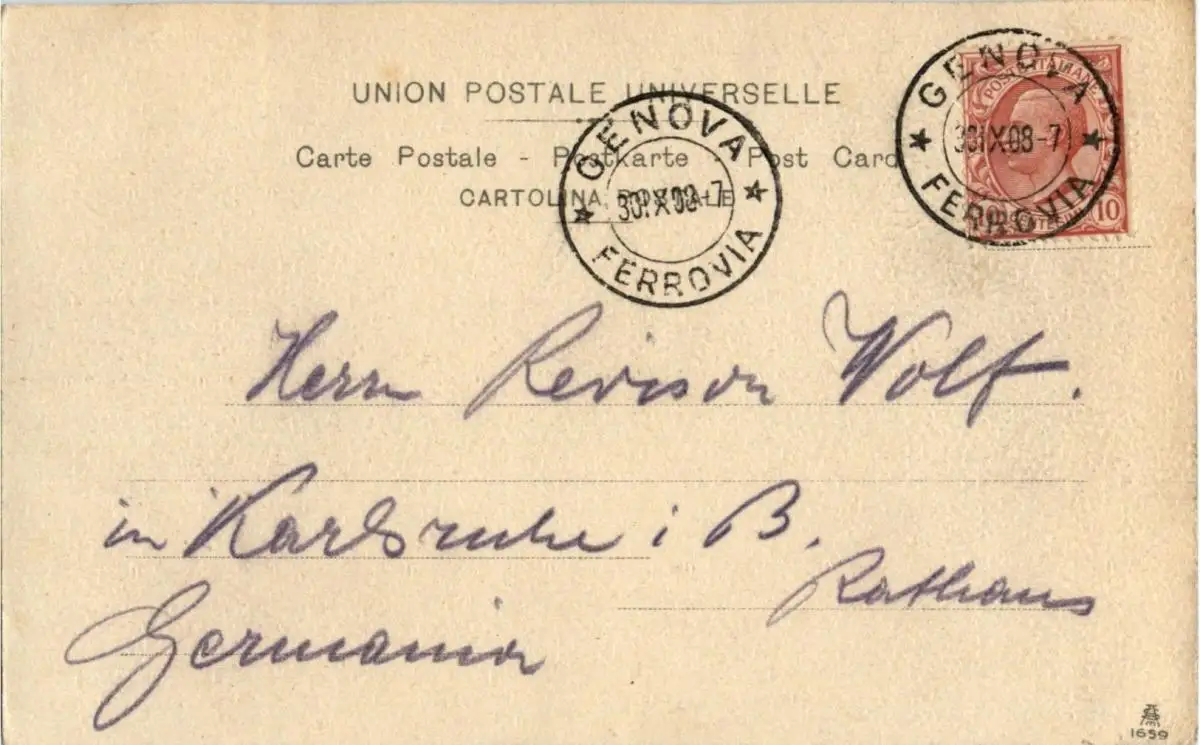 UNION POSTALE UNIVERSELLE
Carte Postale - Postkarte - Post Card
CARTOLINA POSTALE
GENOVA
30 IX 08-7
FERROVIA
GENOVA
30 IX 08-7
FERROVIA
POSTE ITALIANE
10
Herrn Revisor Wolf.
in Karlsruhe i B.
Rathaus
Germania
1659